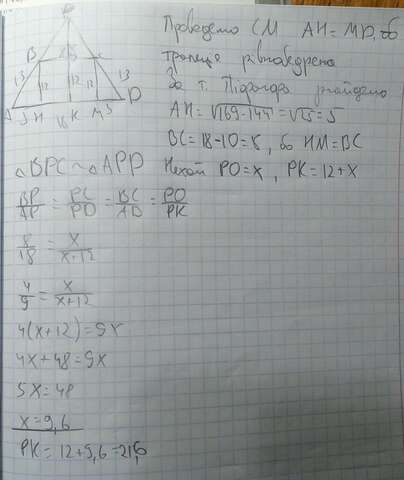 P
B C
13 12 12 12 13
A 5 H 18 K M 5 D
Проведемо CM AH = MD, бо
трапеція рівнобедрена
За т. Піфагора знайдемо
AH = √169-144 = √25 = 5
BC = 18-10 = 8, бо HM = BC
△BPC ~ △APD
Нехай PO = x, PK = 12+x
BP/AP = PC/PD = BC/AD = PO/PK
8/18 = x/x+12
4/9 = x/x+12
4(x+12) = 9x
4x+48 = 9x
5x = 48
x = 9,6
PK = 12+9,6 = 21,6